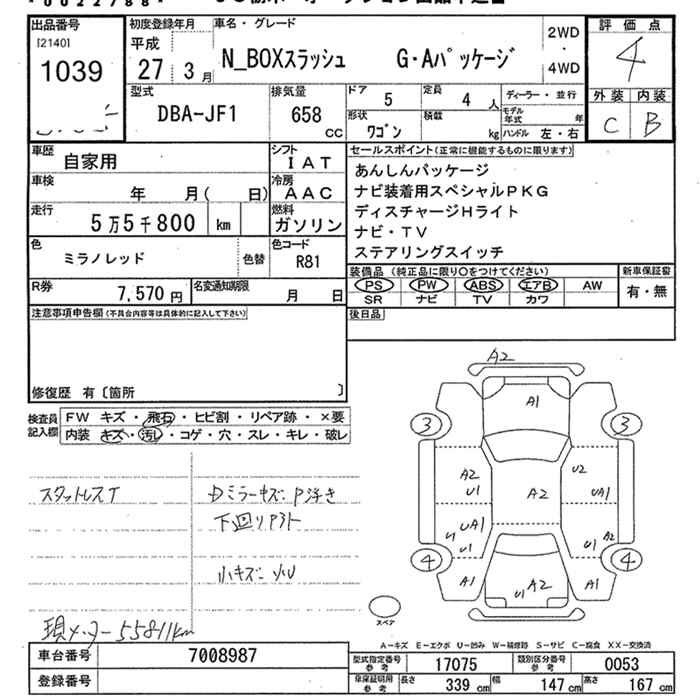 出品番号 初度登録年月 車名・グレード 評価点
[2140] 平成 2WD
1039 27 3月 N_BOXスラッシュ G・Aパッケージ ・ 4
4WD
型式 排気量 ドア 5 定員 4人 ディーラー・並行 外装 内装
DBA-JF1 658 CC 形状 ワゴン 積載 kg モデル年式 年 C B
ハンドル 左・右
車歴 自家用 シフト IAT セールスポイント(正常に機能するものに限ります)
車検 年 月( 日) 冷房 AAC あんしんパッケージ
走行 5万5千800 km 燃料 ガソリン ナビ装着用スペシャルPKG
ディスチャージHライト
ナビ・TV
色 ミラノレッド 色替 色コード R81 ステアリングスイッチ
R券 7,570円 名変通知期限 月 日 装備品(純正品に限り○をつけてください) 新車保証書
PS PW ABS エアB AW 有・無
SR ナビ TV カワ
注意事項申告欄(不具合内容等は具体的に記入して下さい) 後日品
修復歴 有〔箇所 〕
検査員記入欄 FW キズ・飛石・ヒビ割・リペア跡・×要
内装 キズ・汚レ・コゲ・穴・スレ・キレ・破レ
スタットレスT Dミラーキズ・P浮き
下回リサビ
小キズ・小U
現メーター55811km
A2
A1
3 3
A2 U2
U1 A2 UA1
U UA1 A2
U1 U1
4 4
A1 U1 A2 A1
スペア
A-キズ E-エクボ U-凹み W-補修跡 S-サビ C-腐食 XX-交換済
車台番号 7008987 型式指定番号 参考 17075 類別区分番号 参考 0053
登録番号 車庫証明用 参考 長さ 339cm 幅 147cm 高さ 167cm